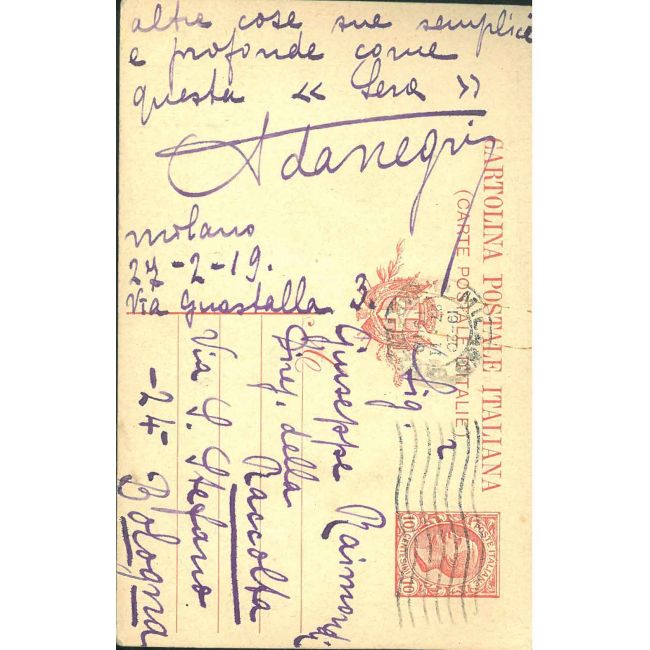 altre cose sue semplici
e profonde come
questa « Sera »
Adanegri
Milano
27-2-19.
Via Guastalla 3.
CARTOLINA POSTALE ITALIANA
(CARTE POSTALE D'ITALIE)
Sig.r
Giuseppe Raimondi
Direj. della
Raccolta
Via S. Stefano
- 24 - Bologna
POSTE ITALIANE
10 CENTESIMI 10